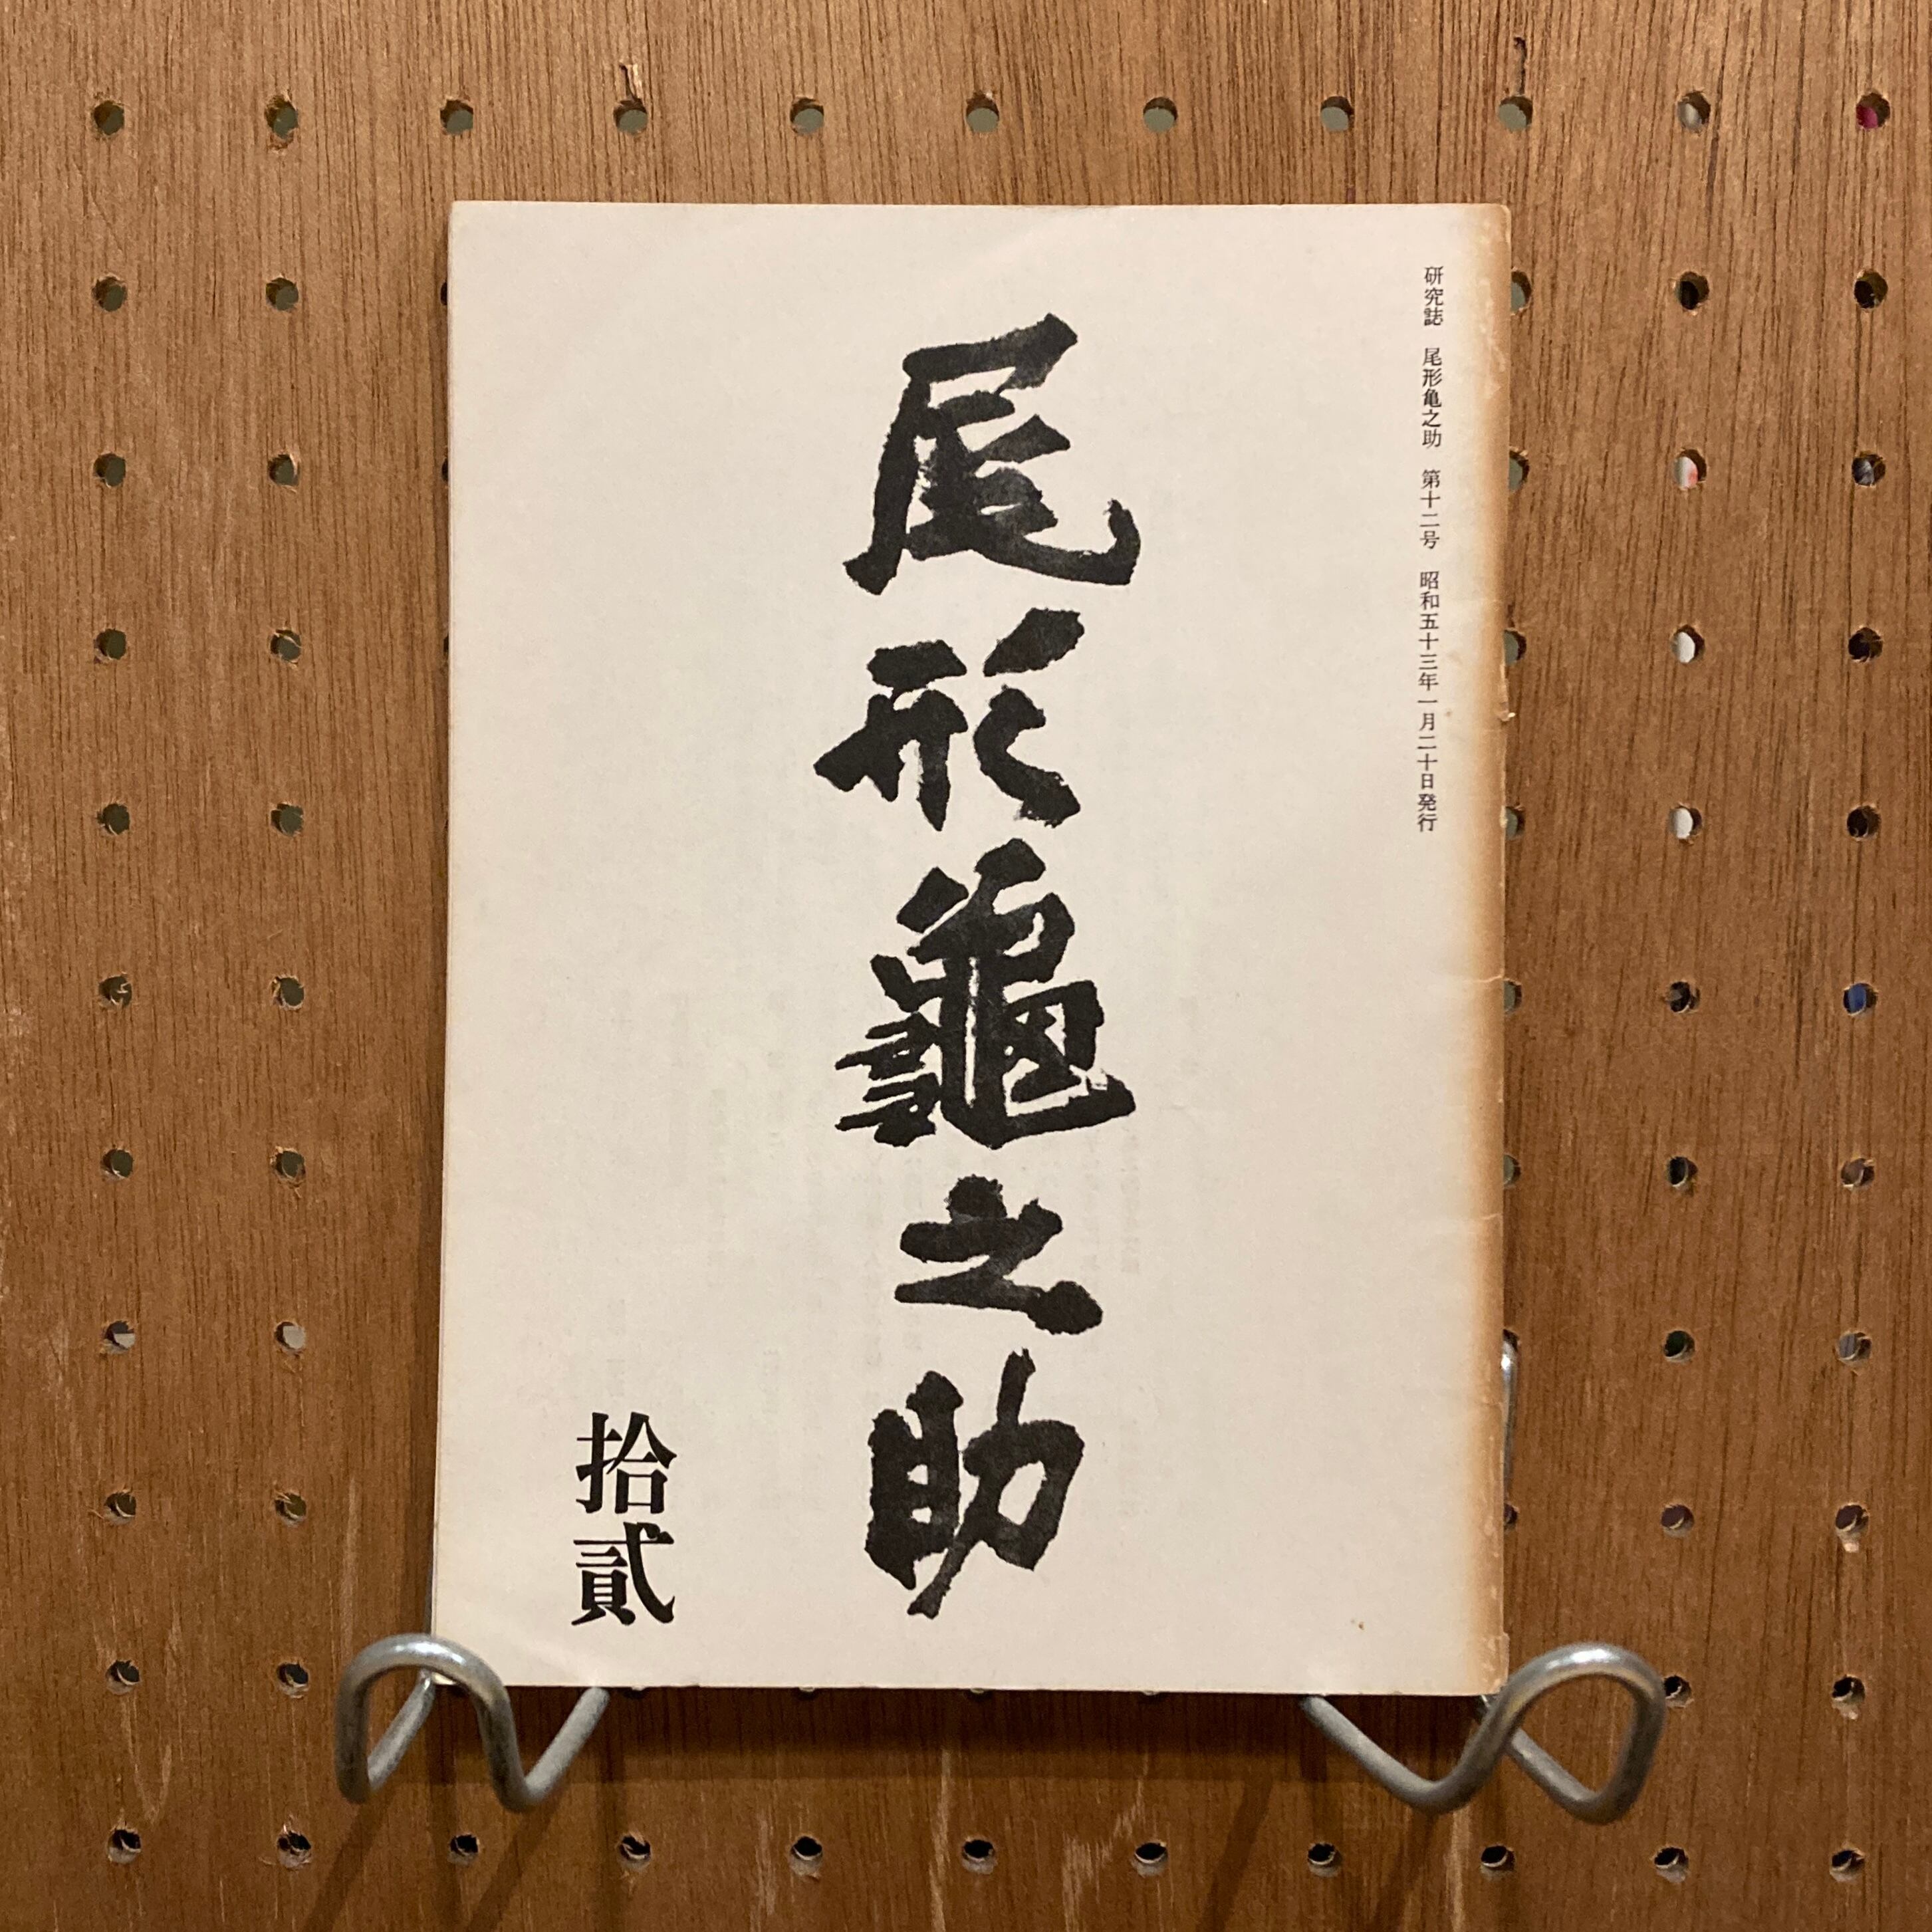 研究誌　尾形亀之助　第十二号　昭和五十三年一月二十日発行
尾形龜之助
拾貳